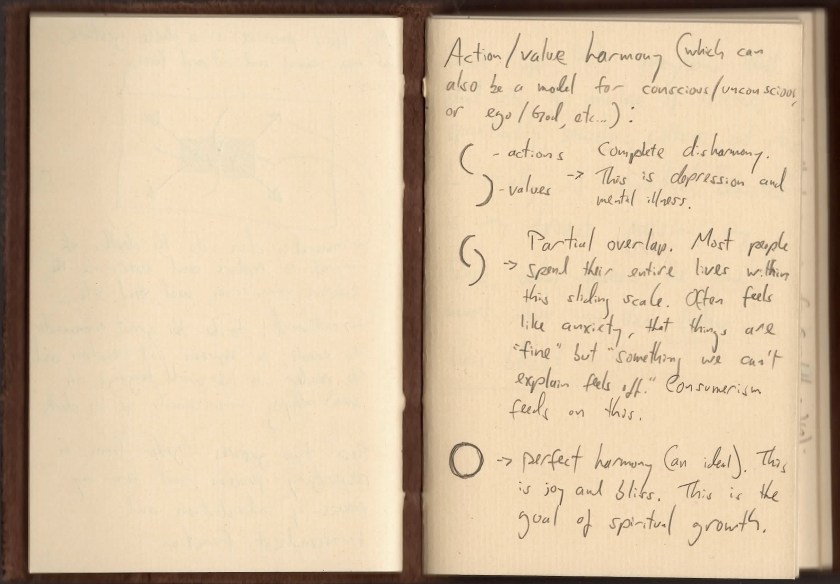 Action/value harmony (which can
also be a model for conscious/unconscious,
or ego/God, etc...):
- actions Complete disharmony.
- values -> This is depression and
mental illness.
Partial overlap. Most people
-> spend their entire lives within
this sliding scale. Often feels
like anxiety, that things are
"fine" but "something we can't
explain feels off." Consumerism
feeds on this.
-> perfect harmony (an ideal). This
is joy and bliss. This is the
goal of spiritual growth.